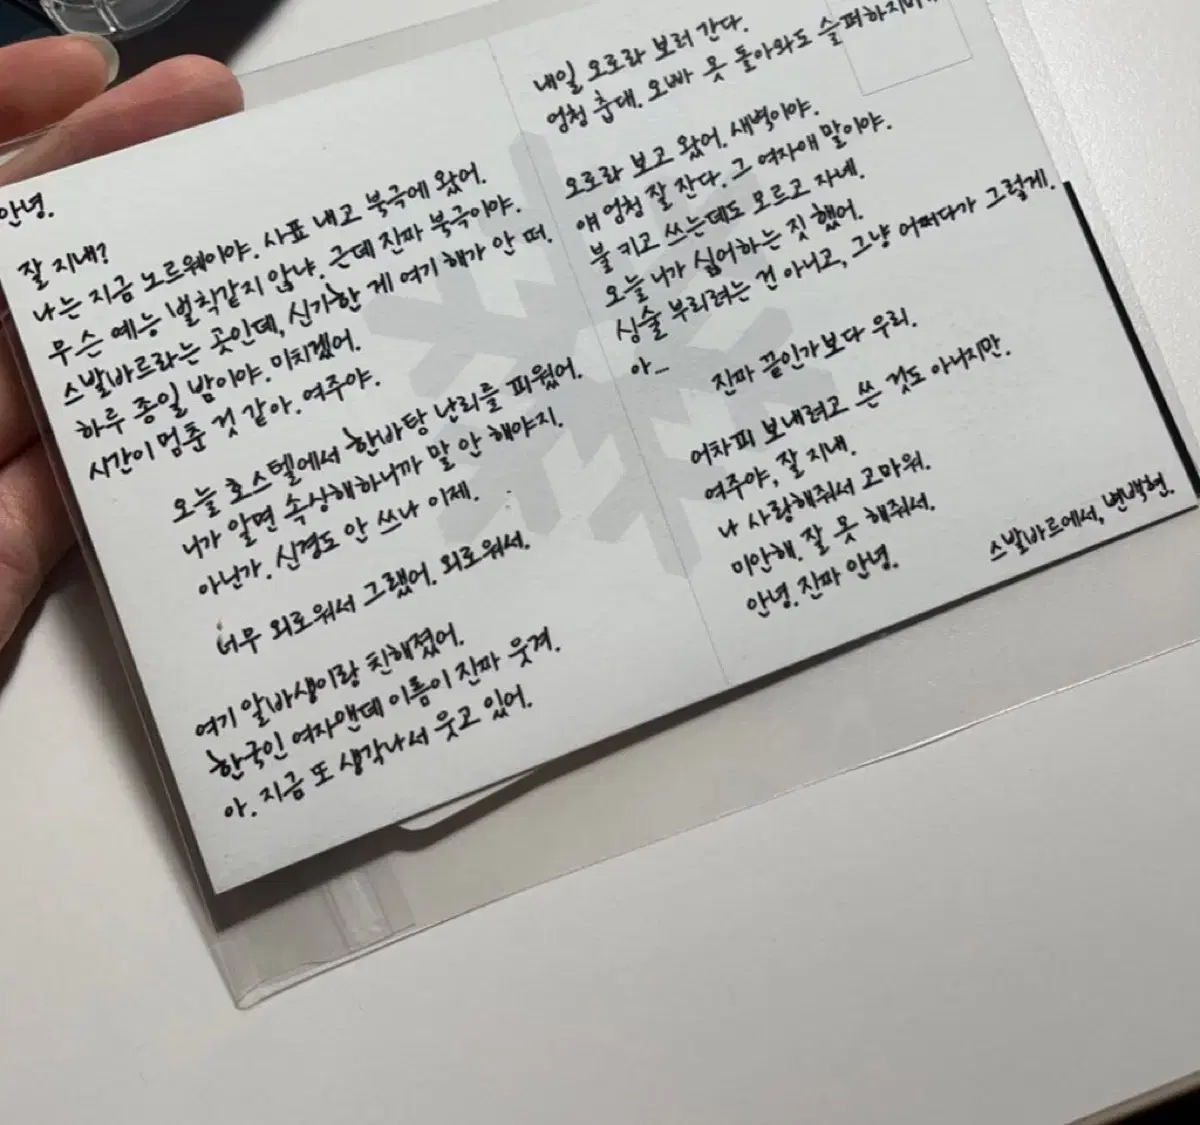 안녕.
잘 지내?
나는 지금 노르웨이야. 사표 내고 북극에 왔어.
무슨 예능 벌칙같지 않냐. 근데 진짜 북극이야.
스발바르라는 곳인데, 신기한 게 여기 해가 안 떠.
하루 종일 밤이야. 미치겠어.
시간이 멈춘 것 같아. 여주야.
오늘 호스텔에서 한바탕 난리를 피웠어.
니가 알면 속상해하니까 말 안 해야지.
아닌가. 신경도 안 쓰나 이제.
너무 외로워서 그랬어. 외로워서.
여기 알바생이랑 친해졌어.
한국인 여자앤데 이름이 진짜 웃겨.
아. 지금 또 생각나서 웃고 있어.
내일 오로라 보러 간다.
엄청 춥대. 오빠 못 돌아와도 슬퍼하지마
오로라 보고 왔어. 새벽이야.
얘 엄청 잘 잔다. 그 여자애 말이야.
불 키고 쓰는데도 모르고 자네.
오늘 니가 싫어하는 짓 했어.
심술 부리려는 건 아니고, 그냥 어쩌다가 그렇게.
아...
진짜 끝인가보다 우리.
어차피 보내려고 쓴 것도 아니지만.
여주야, 잘 지내.
나 사랑해줘서 고마워.
미안해. 잘 못 해줘서.
안녕. 진짜 안녕.
스발바르에서, 변백현.